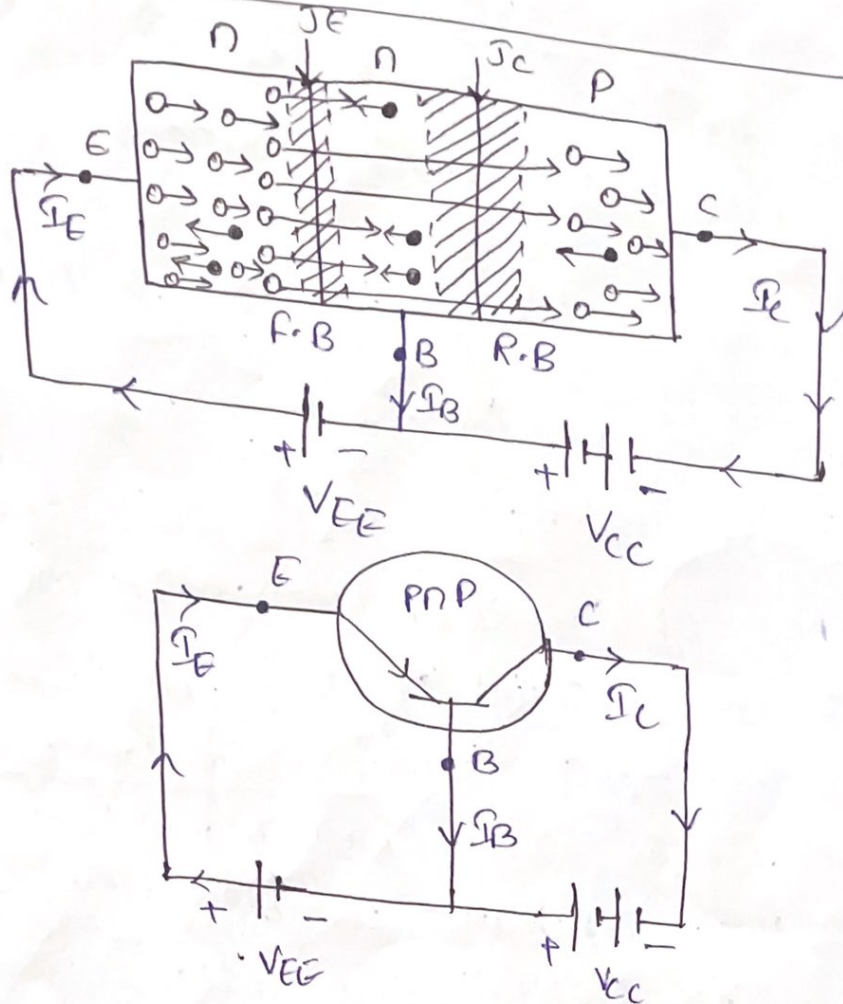 n JE n JC P
E
IE
C
IC
F.B B R.B
IB
+ - + -
VEE VCC
E PnP C
IE IC
B
IB
+ - + -
VEE VCC